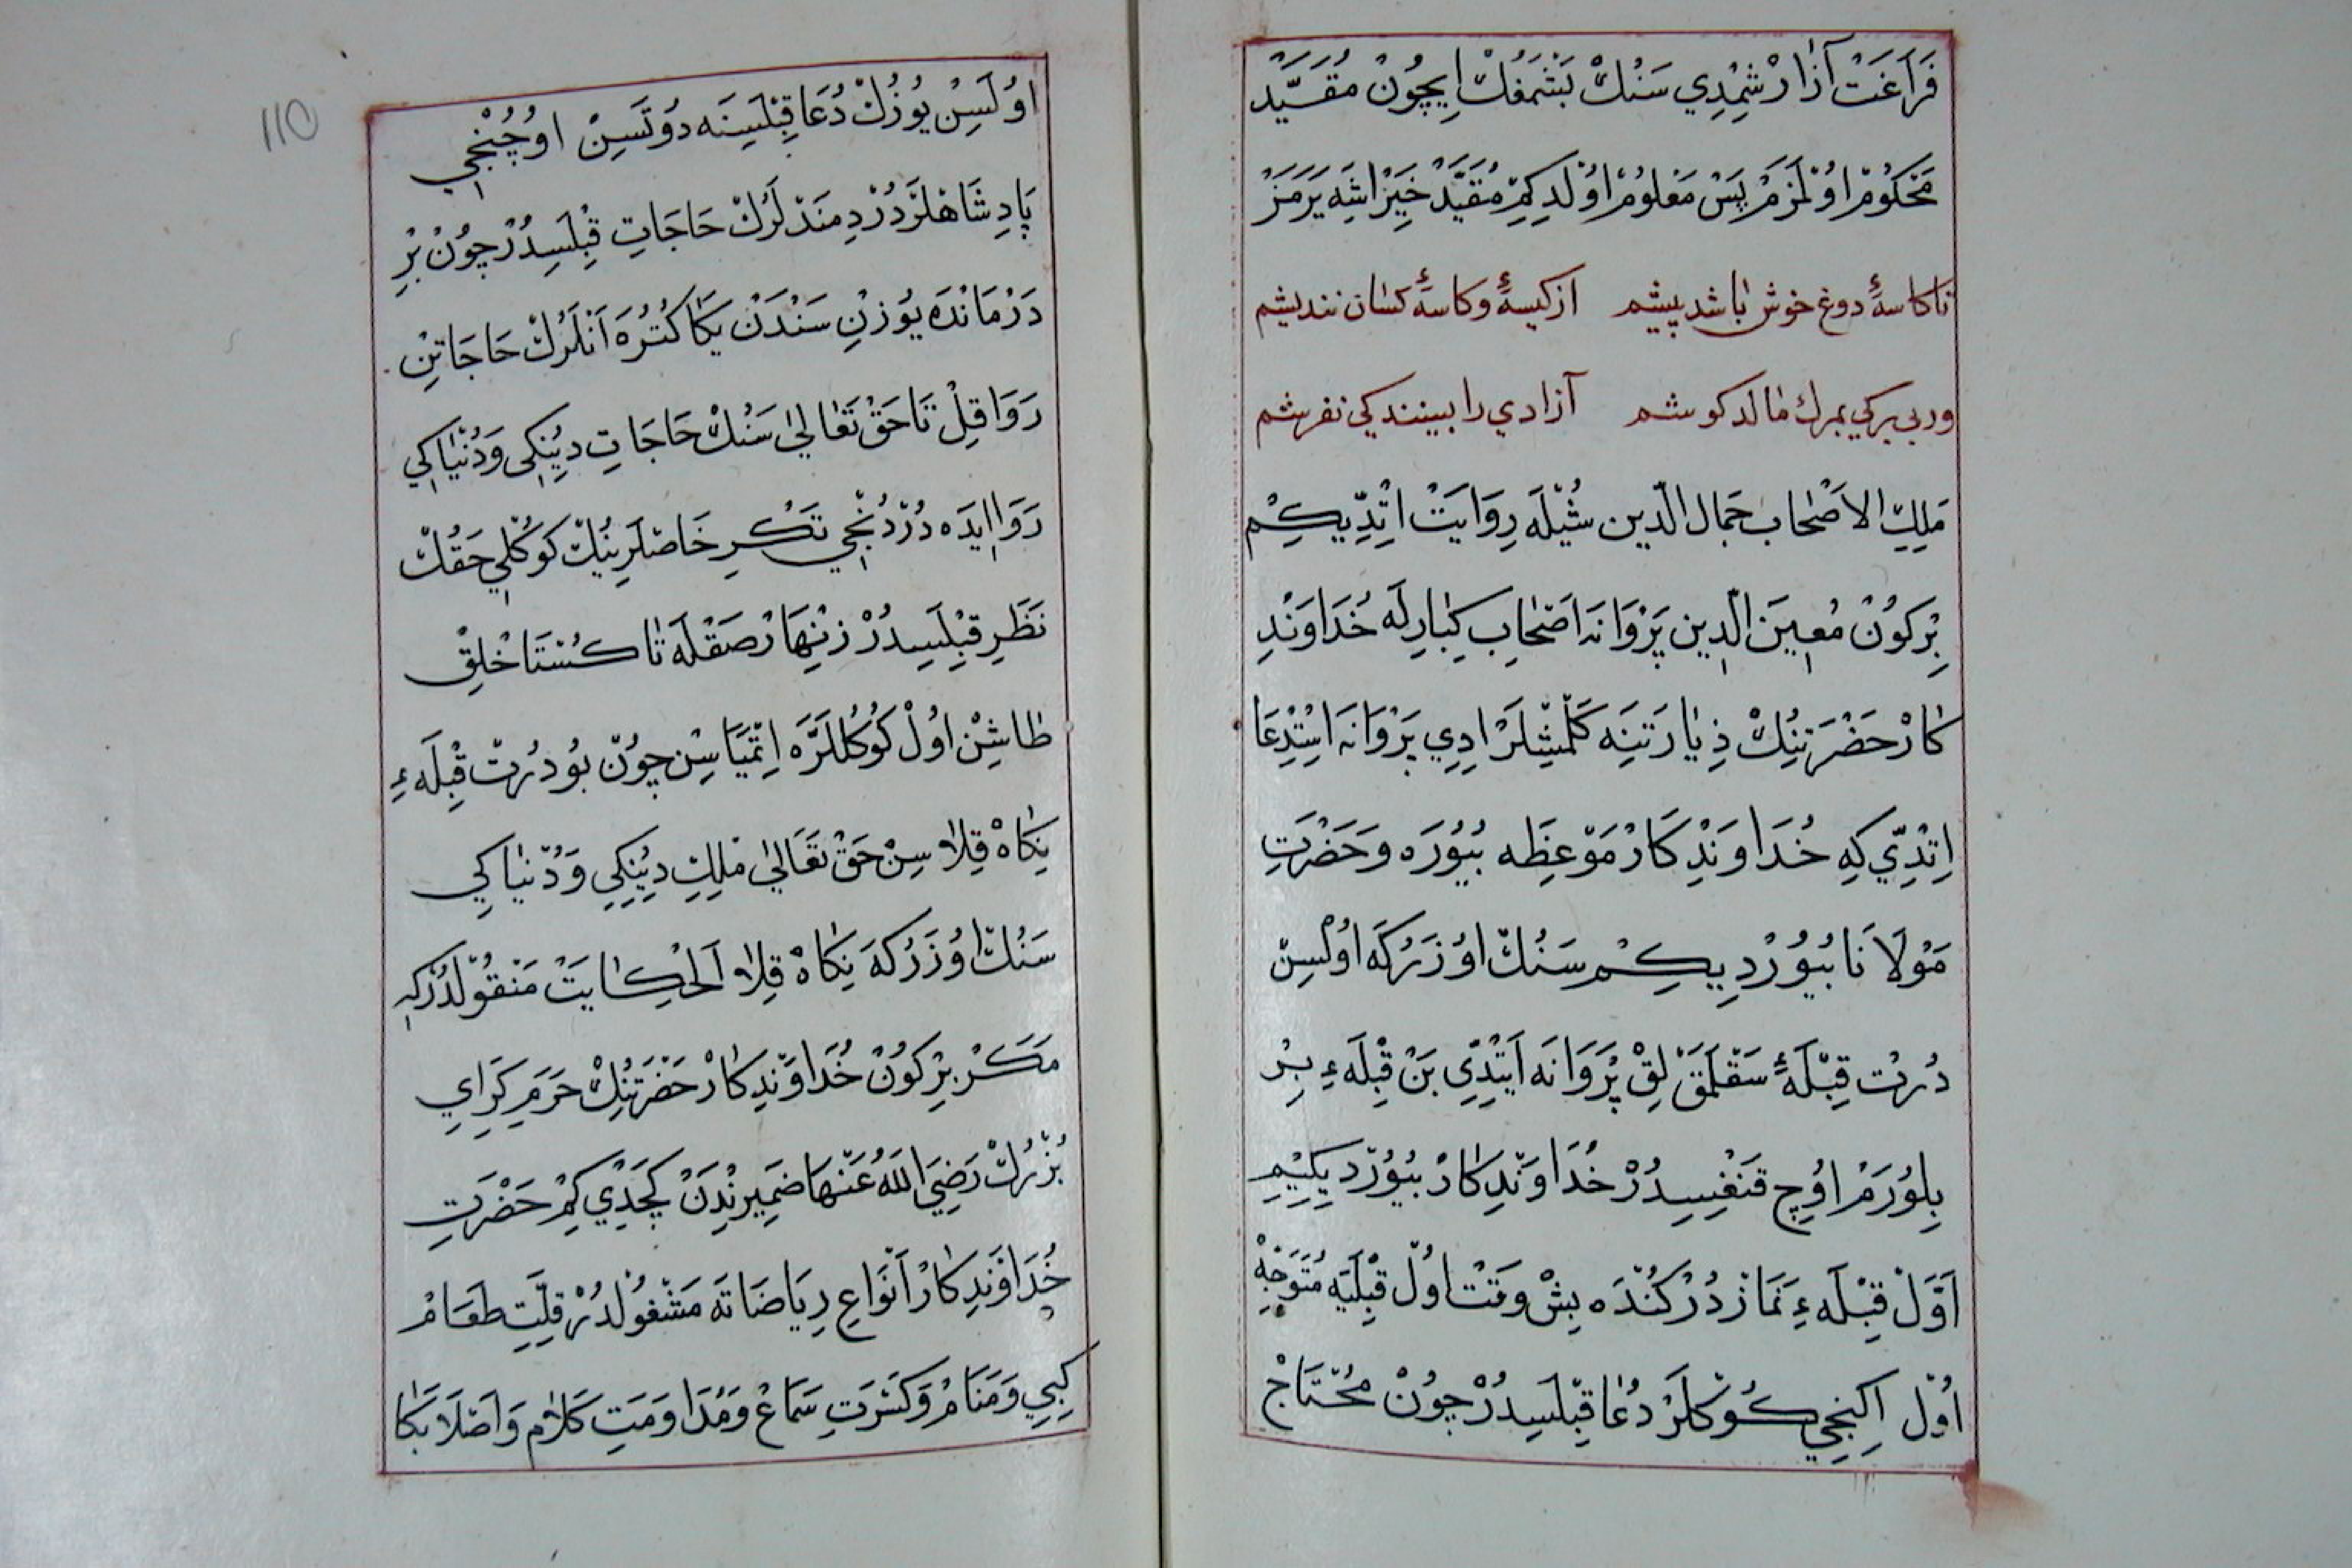 فَرَاغَتْ آزَارْ شِمْدِي سَنُكْ بَشْمَغُكْ اِيچُونْ مُقَيَّدْ
مَحْكُومْ اوُلْمَزَمْ پَسْ مَعْلُومْ اوُلْدِكِمْ مُقَيَّدْ خَيْرْ اشِه يَرَمَزْ
تا كاسهٔ دوغ خوش باشد پيشم از كيسهٔ و كاسهٔ كسان ننديشم
ور بى بركى بمرك مالد كوشم آزادي را ببيندكي نفرشم
مَلِكِ الاَصْحَاب جَمَال الدّين شُيْلَه رِوَايَتْ اِتْدِيكِمْ
بِرْ كوُنْ مُعِينَ الدِين پَرْوَانَه اَصْحَابِ كِبَارِلَه خُدَاوَنْدِ
كَارْ حَضْرَتِنِكْ ذِيَارَتِنَه كَلْمِشْلَرْ ادِي پَرْوَانَه اسْتِدْعَا
اِتْدِي كِه خُدَاوَنْدِ كَارْ مَوْعِظَه بُيُورَه وَحَضْرَتِ
مَوْلاَنَا بُيُورْدِيكِمْ سَنُكْ اوُزَرُكَه اوُلْسِنْ
دُرْت قِبْلَهٔ سَقْلَمَقْلِقْ پَرْوَانَه اَيْتِدِي بَنْ قِبْلَهءِ بِرْ
بِلوُرَمْ اوُچِ قَنْغِيسِدُرْ خُدَاوَنْدِ كَارْ بُيُورْدِيكِيمِ
اَوَّلْ قِبْلَهءِ نَمَازْدُرْ كُنْدَه بِشْ وَقَتْ اوُلْ قِبْلَيَه مُتَوَجِّهْ
اوُلْ اِكِنْجِي كُوكْلَرْ دُعَا قِبْلَسِدُرْ چوُنْ مُحْتَاجْ
اوُلَسِنْ يوُزُكْ دُعَا قِبْلَسِنَه دوُتَسِنْ اوُچُنْجِي
پَادِشَاهْلَرْ دَرْدِمَنْدْلَرُكْ حَاجَاتِ قِبْلَسِدُرْ چوُنْ بِرْ
دَرْمَانْدَه يوُزنِ سَنْدَنْ يَكَا كُتُرَه اَنْلَرُكْ حَاجَاتِنْ
رَوَا قِلْ تَا حَقْ تَعَالىٰ سَنُكْ حَاجَاتِ دِينِكِى وَدُنْيَاكِي
رَوَا اِيدَه دُرْدُنْجِي تَكْرِ خَاصْلَرِينُكْ كوُكُلِي حَقُكْ
نَظَرِ قِبْلَسِدُرْ زِنْهَارْ صَقْلَه تَا كُسْتَاخْلِقْ
طَاشِنْ اوُلْ كوُكُللَرَه اِتْمَيَاسِنْ چوُنْ بوُ دُرْت قِبْلَهءِ
نِكَاهْ قِلاَسِنْ حَقْ تَعَالىٰ مُلِكِ دِينِكِي وَدُنْيَاكِي
سَنُكْ اوُزَرُكَه نِكَاهْ قِلاَ اَلْحِكَايَتْ مَنْقُولْدُرْكِه
مَكَرْ بِرْ كوُنْ خُدَاوَنْدِ كَارْ حَضْرَتِنُكْ حَرَمِ كَرَاي
بُزْرُكْ رَضِيَ اللهُ عَنْهَا ضَمِيرِنْدَنْ كَچَدِي كِمْ حَضْرَتِ
خُدَاوَنْدِ كَارْ اَنْوَاعِ رِيَاضَاتَه مَشْغوُلْدُرْ قِلَّتِ طَعَامْ
كِبِي وَمَنَامْ وَكَثْرَتِ سَمَاعْ وَمُدَاوَمَتِ كَلاَم وَاَصْلاَ بَكَا
110